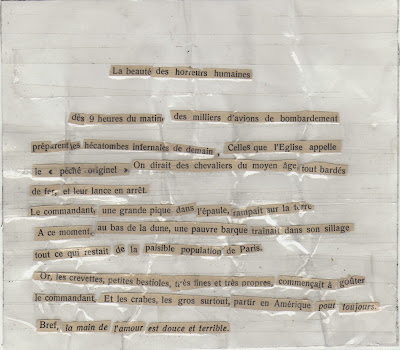 La beauté des horreurs humaines
dès 9 heures du matin des milliers d'avions de bombardement
préparent les hécatombes infernales de demain, Celles que l'Eglise appelle
le « péché originel » On dirait des chevaliers du moyen âge tout bardés
de fer, et leur lance en arrêt.
Le commandant, une grande pique dans l'épaule, rampait sur la terre
A ce moment, au bas de la dune, une pauvre barque traînait dans son sillage
tout ce qui restait de la paisible population de Paris.
Or, les crevettes, petites bestioles, très fines et très propres, commençait à goûter
le commandant, Et les crabes, les gros surtout, partir en Amérique pour toujours.
Bref, la main de l'amour est douce et terrible.